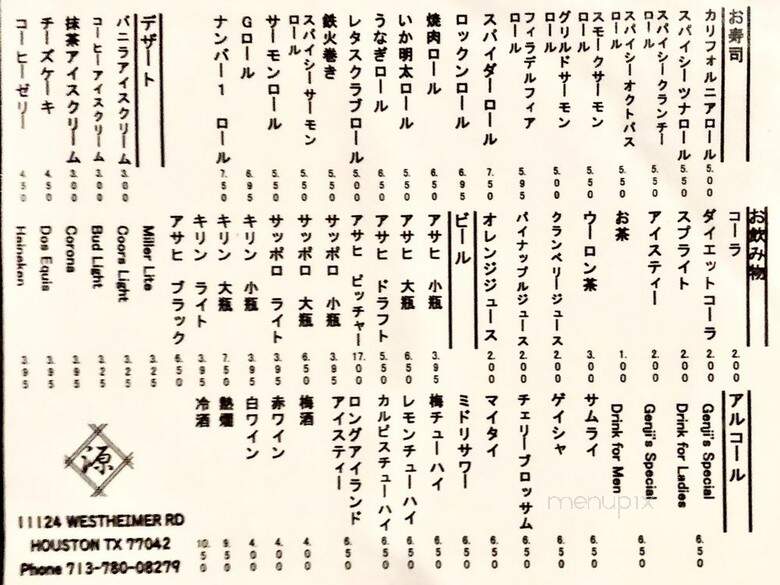 お寿司
カリフォルニアロール 5.00
スパイシーツナロール 5.50
スパイシークランチーロール 5.50
スパイシーオクトパスロール 5.50
スモークサーモンロール 5.50
グリルドサーモンロール 5.00
フィラデルフィアロール 5.95
スパイダーロール 7.50
ロックンロール 6.95
焼肉ロール 6.50
いか明太ロール 5.00
うなぎロール 6.50
レタスクラブロール 5.00
鉄火巻き 6.50
スパイシーサーモンロール 5.50
サーモンロール 5.00
Gロール 6.95
ナンバー1 ロール 7.50
デザート
バニラアイスクリーム 3.00
コーヒーアイスクリーム 3.00
抹茶アイスクリーム 3.00
チーズケーキ 4.50
コーヒーゼリー 4.50
お飲み物
コーラ 2.00
ダイエットコーラ 2.00
スプライト 2.00
アイスティー 2.00
お茶 1.00
ウーロン茶 3.00
クランベリージュース 2.00
パイナップルジュース 2.00
オレンジジュース 2.00
ビール
アサヒ 小瓶 3.95
アサヒ 大瓶 6.50
アサヒ ドラフト 5.50
アサヒ ピッチャー 17.00
サッポロ 小瓶 3.95
サッポロ 大瓶 6.50
サッポロ ライト 3.95
キリン 小瓶 3.95
キリン 大瓶 7.50
キリン ライト 3.95
アサヒ ブラック 6.50
Miller Lite 3.25
Coors Light 3.25
Bud Light 3.25
Corona 3.95
Dos Equis 3.95
Heineken 3.95
アルコール
Genji's Special
Drink for Ladies 6.50
Genji's Special
Drink for Men 6.50
サムライ 6.50
ゲイシャ 6.50
チェリーブロッサム 6.50
マイタイ 6.50
ミドリサワー 6.50
梅チューハイ 6.50
レモンチューハイ 6.50
カルピスチューハイ 6.50
ロングアイランド
アイスティー 6.50
梅酒 4.00
赤ワイン 4.00
白ワイン 4.00
熱燗 9.50
冷酒 10.50
源
11124 WESTHEIMER RD
HOUSTON TX 77042
Phone 713-780-08279
menupix